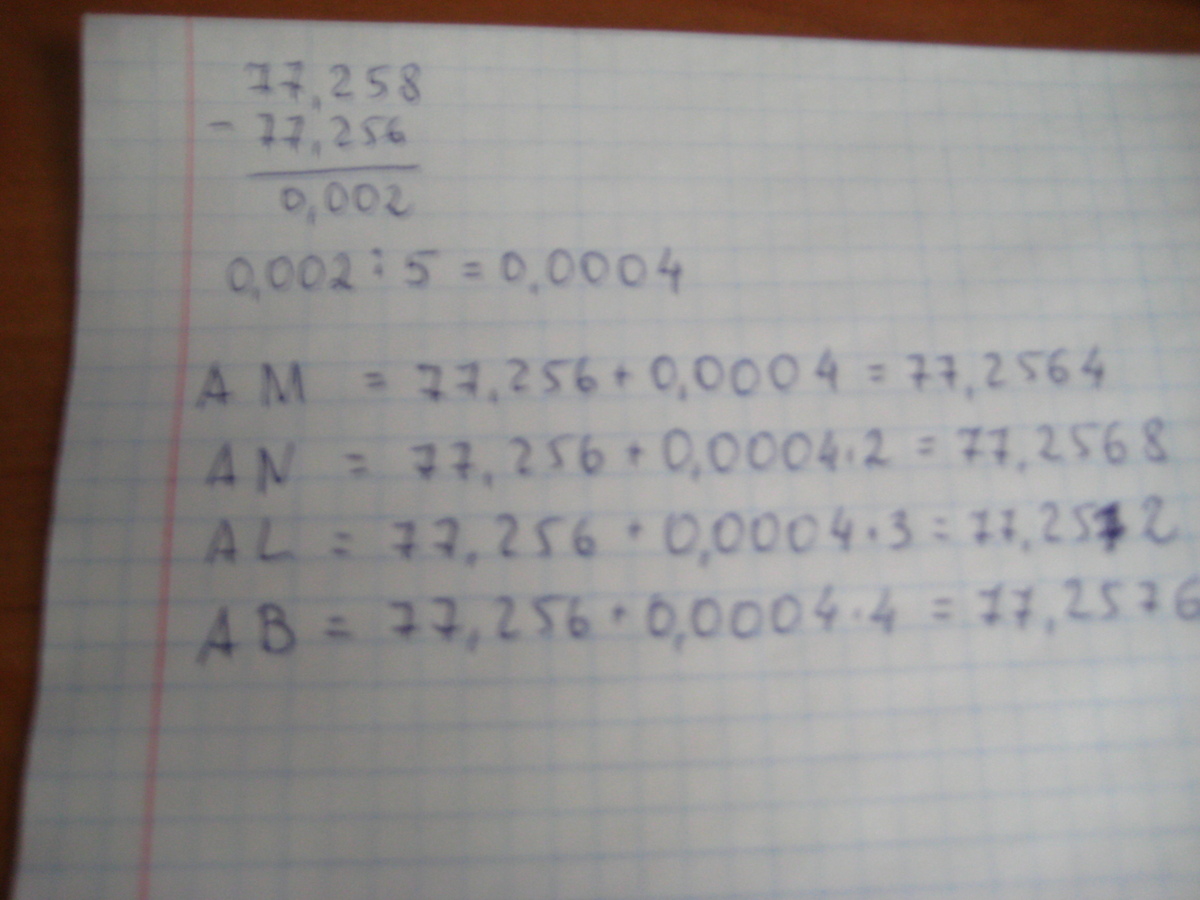 77,258
- 77,256
0,002
0,002 : 5 = 0,0004
AM = 77,256 + 0,0004 = 77,2564
AN = 77,256 + 0,0004 · 2 = 77,2568
AL = 77,256 + 0,0004 · 3 = 77,2572
AB = 77,256 + 0,0004 · 4 = 77,2576